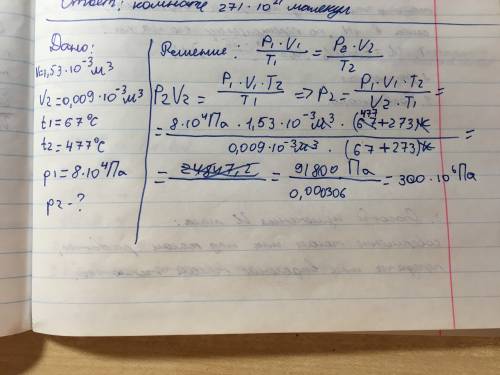 Ответ: комнате 271 · 10²¹ молекул
Дано:
V₁=1,53·10⁻³ м³
V₂=0,009·10⁻³ м³
t₁=67°C
t₂=477°C
p₁=8·10⁴Па
p₂-?
Решение: P₁·V₁/T₁ = P₂·V₂/T₂
P₂V₂ = P₁·V₁·T₂/T₁ => P₂ = P₁·V₁·T₂/V₂·T₁ =
= 8·10⁴Па · 1,53·10⁻³ м³ · (477+273)К / 0,009·10⁻³ м³ · (67+273)К =
= = 91800 Па/0,000306 = 300·10⁶Па